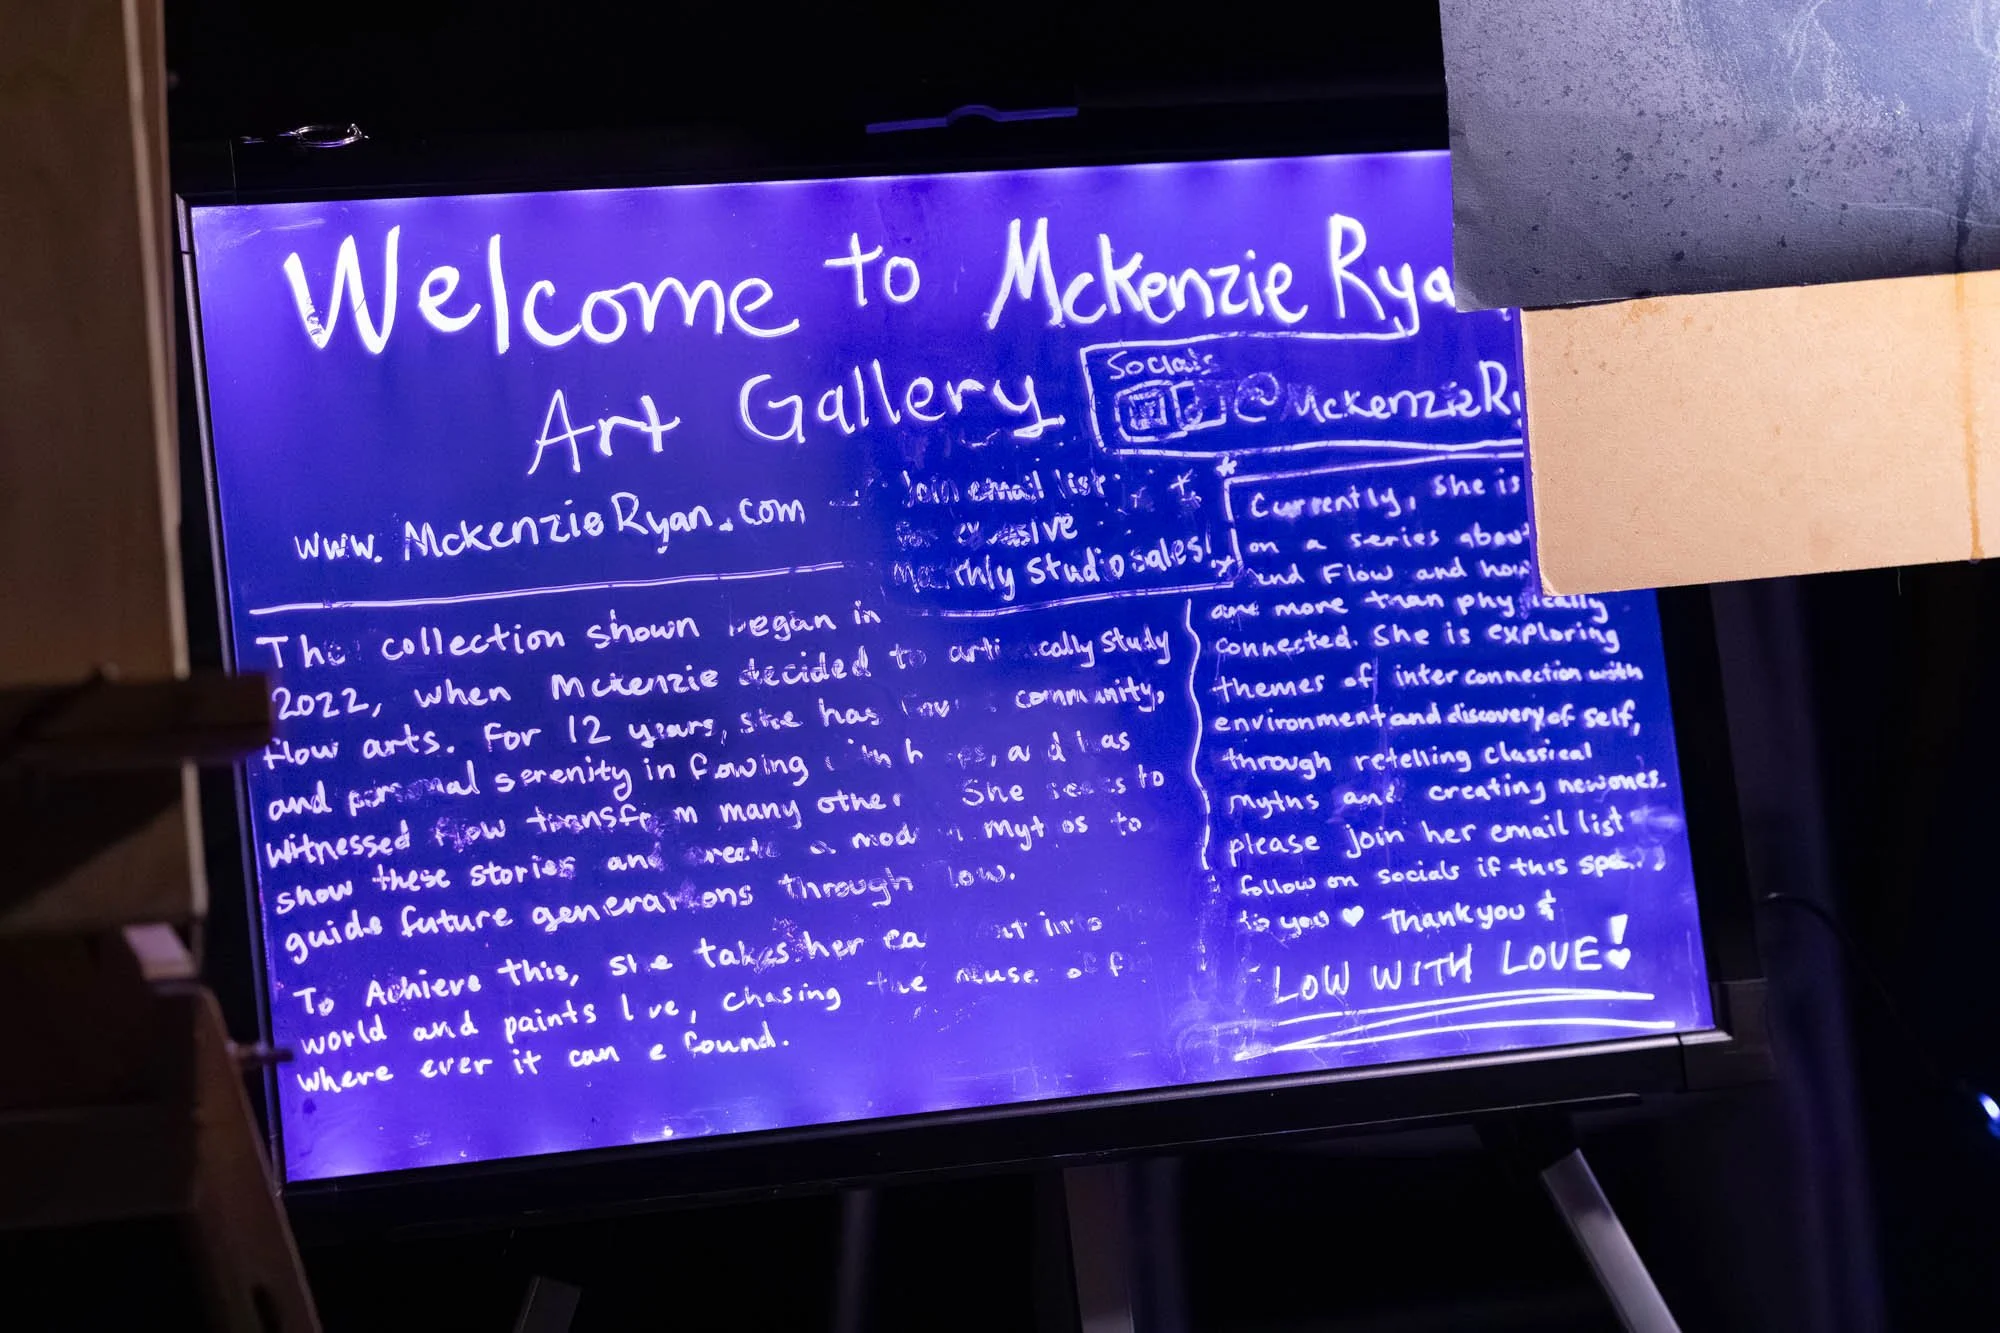 Welcome to Mckenzie Rya
Art Gallery
Socials
@MckenzieRy
www.MckenzieRyan.com
Join email list
Monthly Studio sales!
The collection shown began in
2022, when Mckenzie decided to artistically study
flow arts. For 12 years, she has community,
and personal serenity in flowing and has
witnessed flow transform many other She seeks to
show these stories and create a modern mythos to
guide future generations through
To Achieve this, she takes her
world and paints live, chasing the muse of
where ever it can e found.
Currently, she is
on a series abou
and Flow and how
are more than physically
connected. She is exploring
themes of interconnection with
environment and discovery of self,
through retelling classical
myths and creating new ones.
please join her email list
follow on socials if this
to you ♥ Thank you &
LOW WITH LOVE!